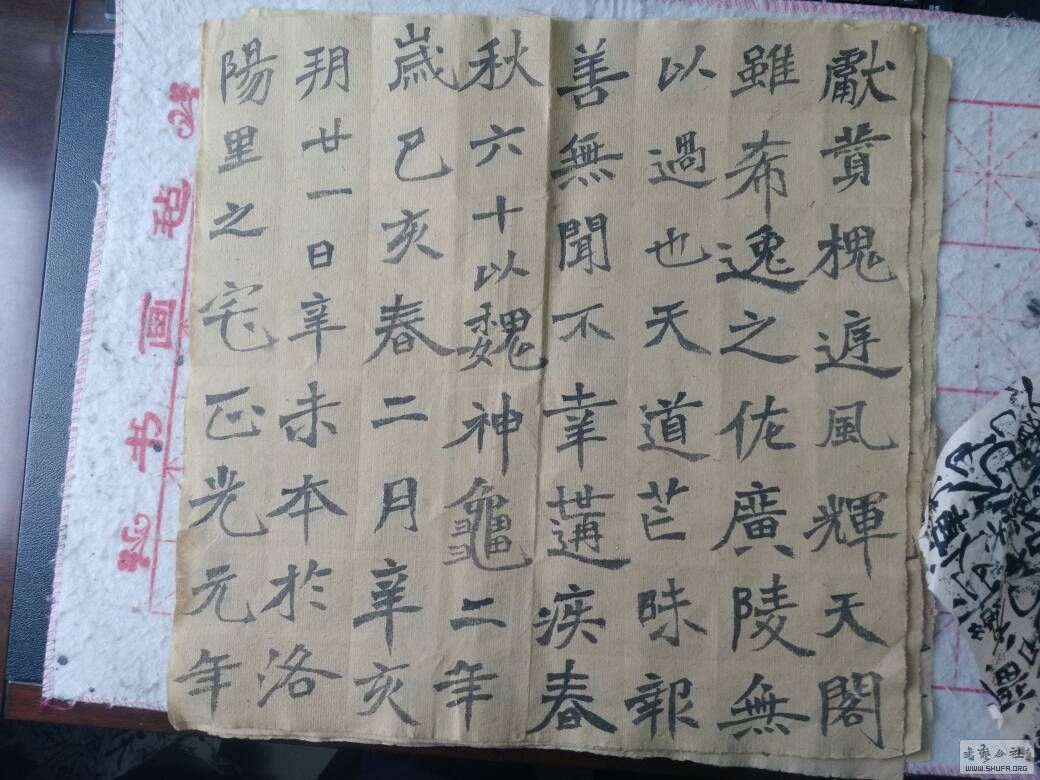 獻賛槐遟風輝天閣
雖希逸之佐廣陵無
以過也天道芒昧報
善無聞不幸遘疾春
秋六十以魏神龜二年
歲巳亥春二月辛亥
朔廿一日辛未卒於洛
陽里之宅正光元年
书画毡
書藝公社
WWW.SHUFA.ORG